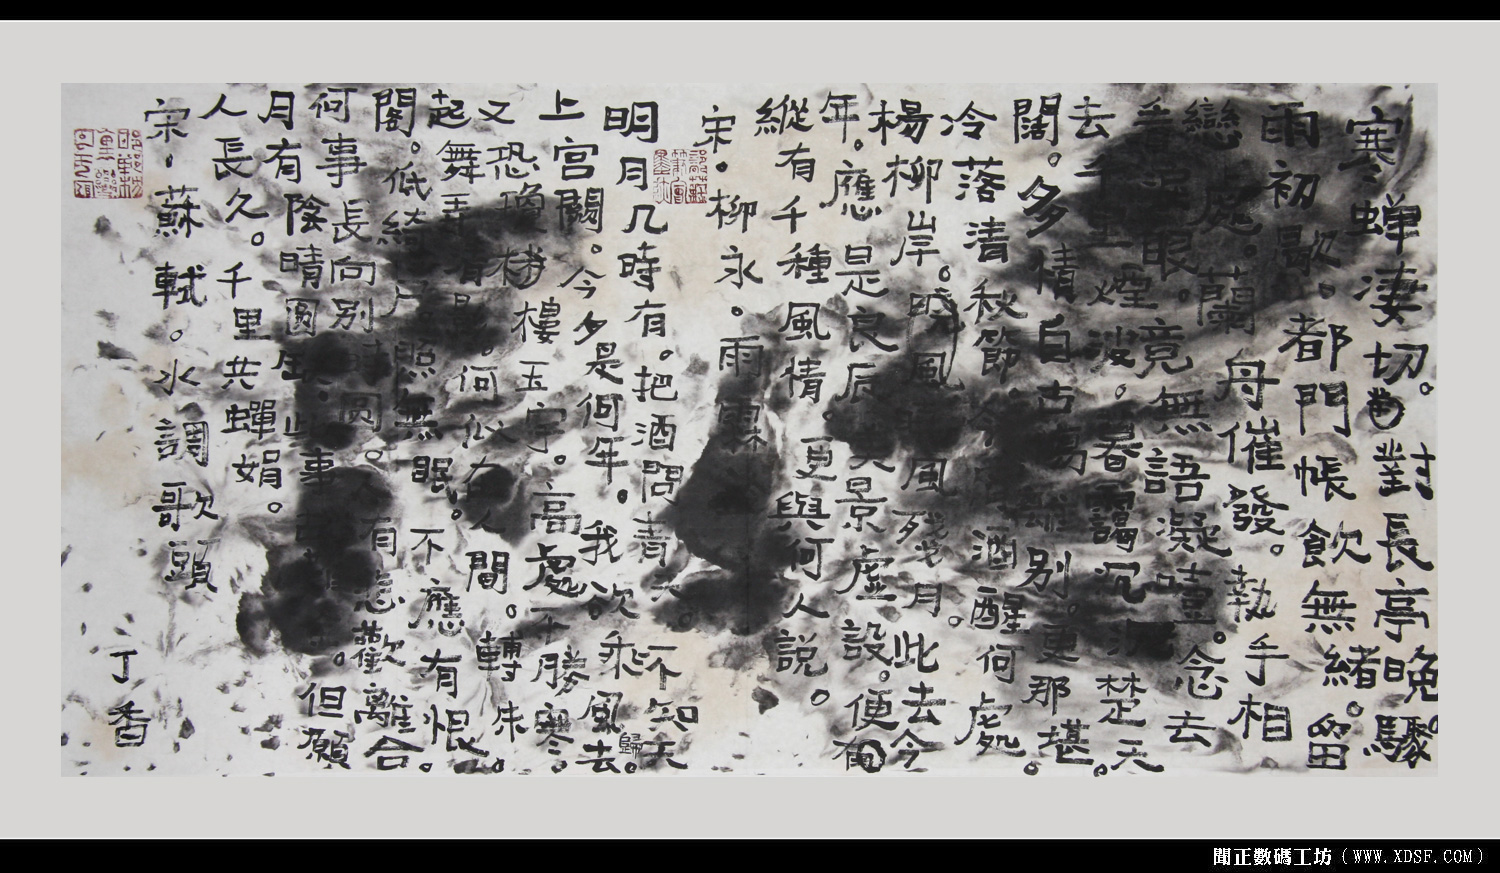 寒蟬淒切。對長亭晚。驟
雨初歇。都門帳飲無緒。留
戀處。蘭舟催發。執手相
看淚眼。竟無語凝噎。念去
去千里煙波。暮靄沉沉楚天
闊。多情自古傷離別。更那堪。
冷落清秋節。今宵酒醒何處。
楊柳岸。曉風風殘月。此去今
年。應是良辰美景虛設。便有
縱有千種風情。更與何人説。
宋。柳永。雨霖
明月几時有。把酒問青天。不知天
上宮闕。今夕是何年。我欲乘風歸去。
又恐瓊樓玉宇。高處不勝寒。
起舞弄清影。何似在人間。轉朱
閣。低綺戶。照無眠。不應有恨。
何事長向別時圓。有悲歡離合。
月有陰晴圓缺。此事古難全。但願
人長久。千里共蟬娟。
宋。蘇軾。水調歌頭
丁香
聞正數碼工坊（WWW.XDSF.COM）